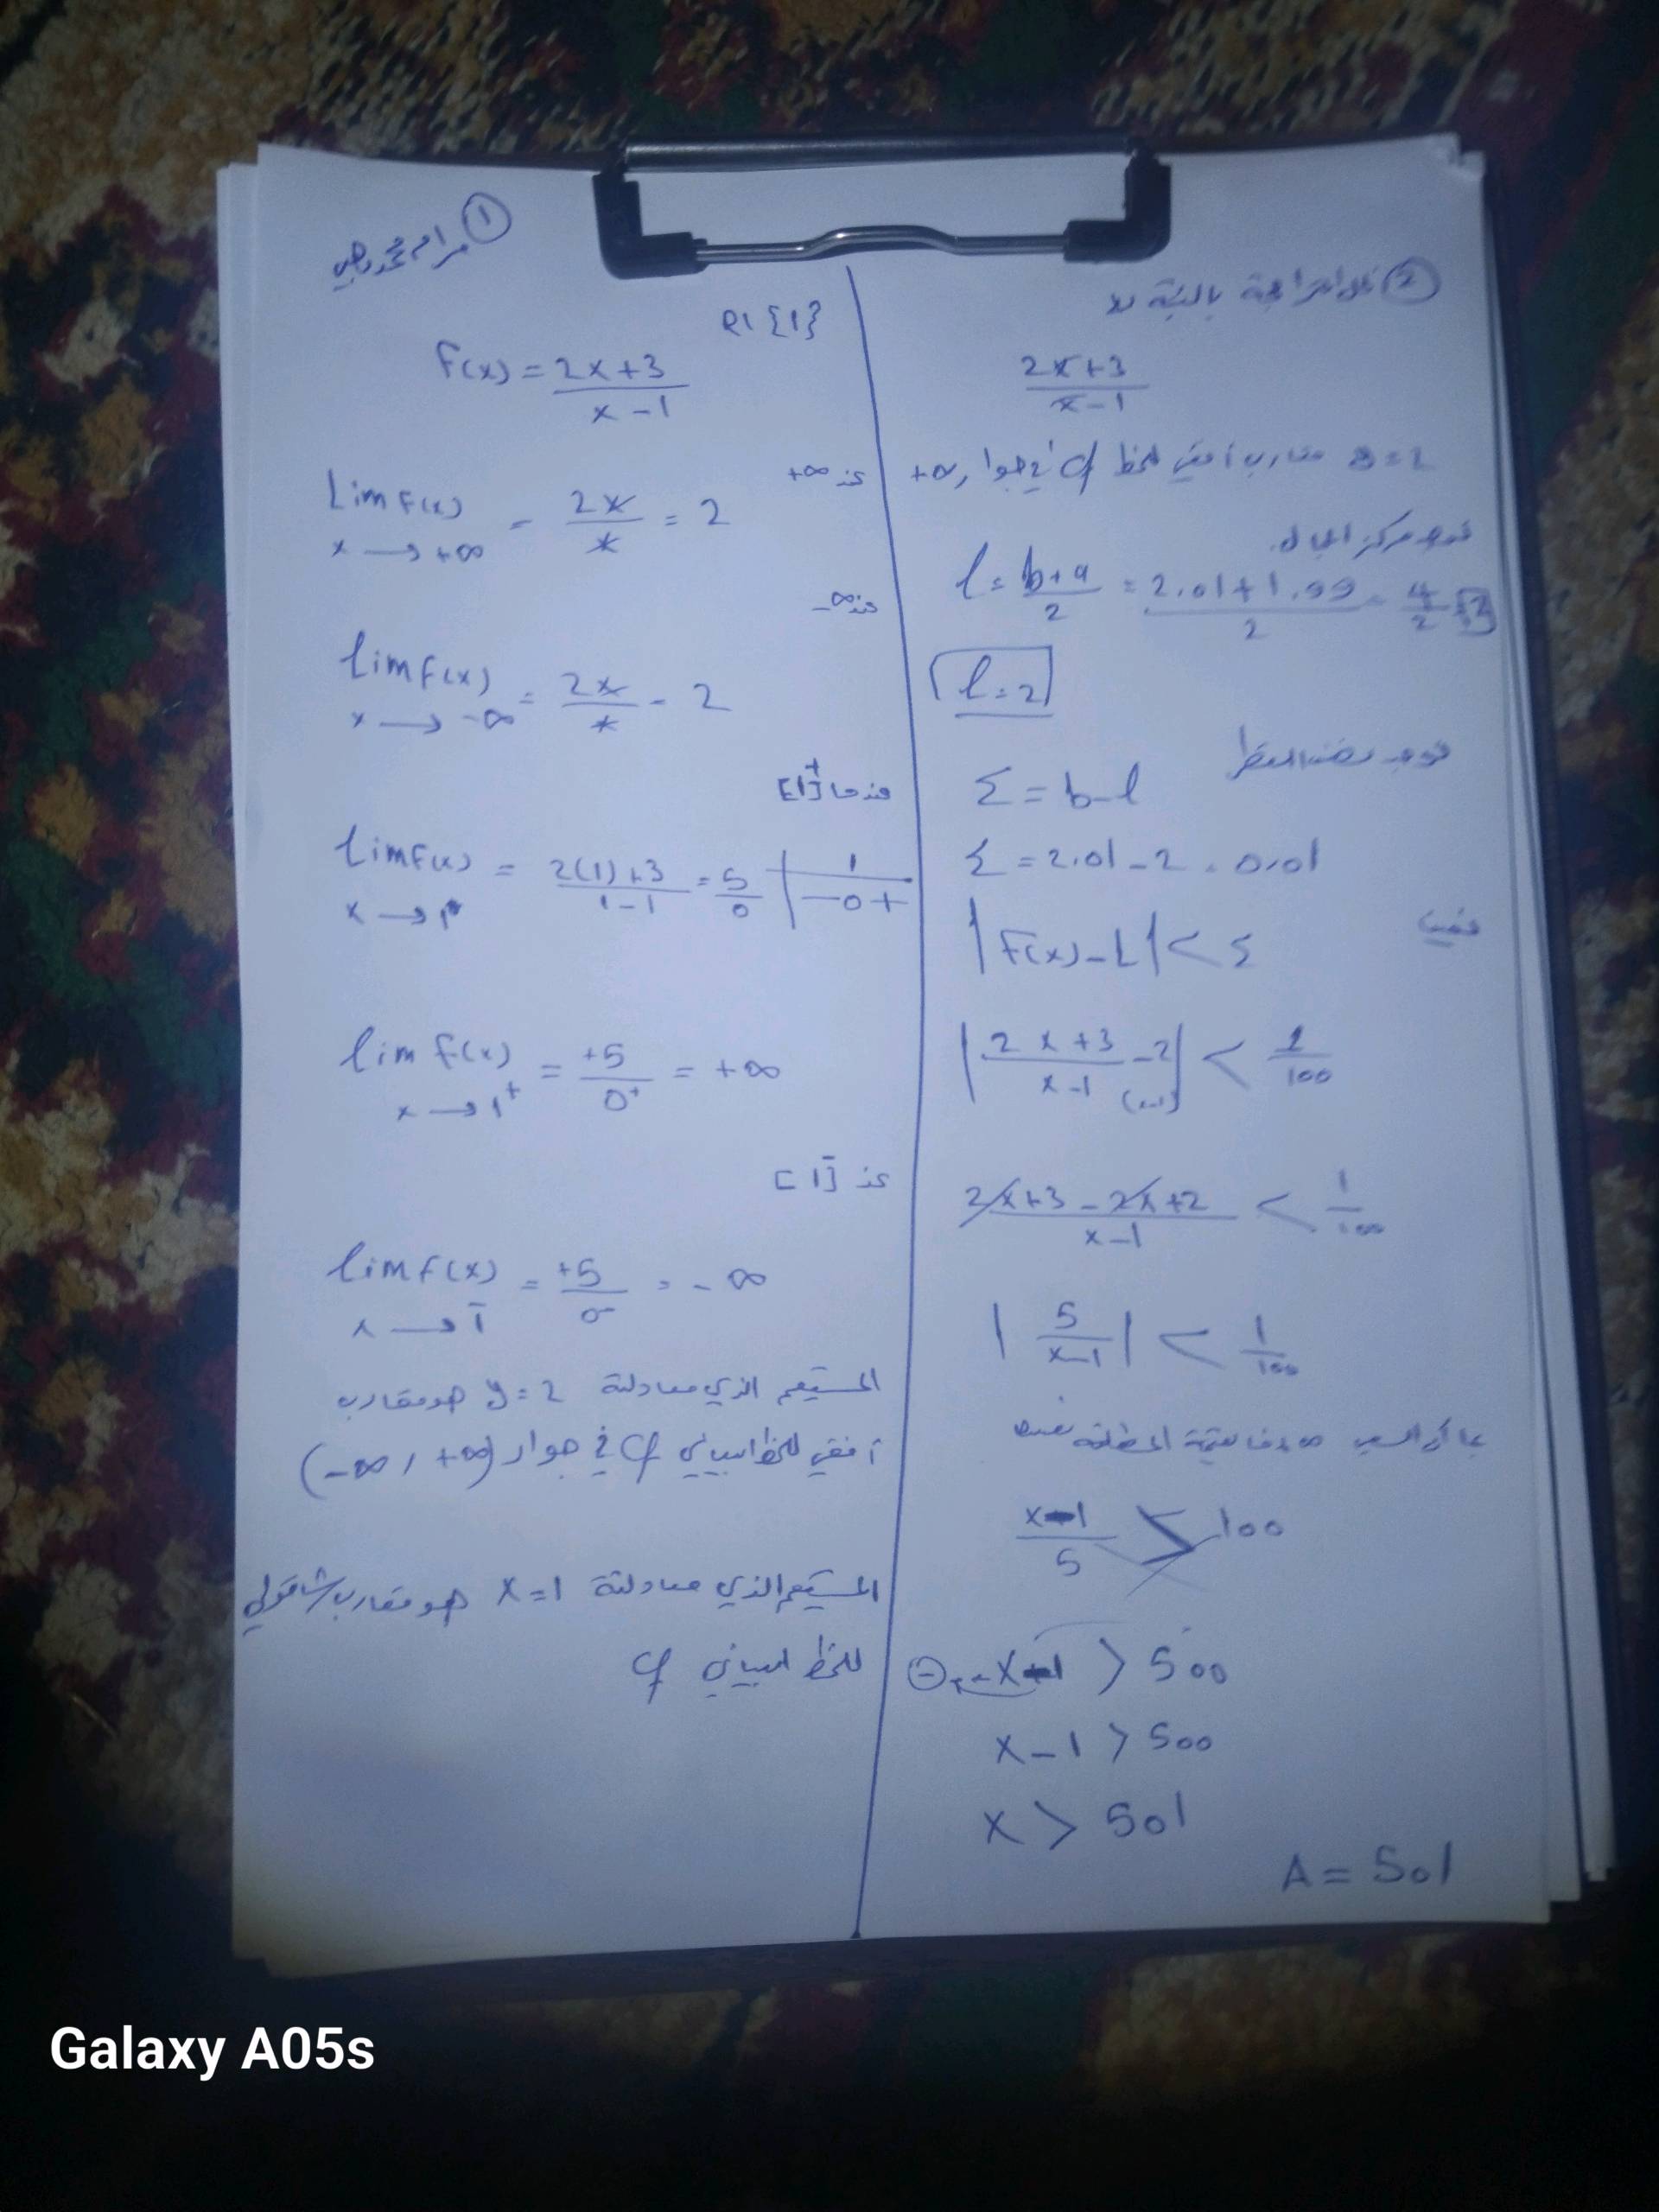 ① مرام محمد
R\ {1}
F(x) = 2x+3 / x-1
عند +∞
Lim F(x) x→+∞ = 2x / x = 2
عند -∞
lim F(x) x→-∞ = 2x / x = 2
عندما [1]⁺
lim F(x) x→1 = 2(1)+3 / 1-1 = 5 / 0
1
-0+
lim F(x) x→1⁺ = +5 / 0⁺ = +∞
عند [1]⁻
lim f(x) x→1⁻ = +5 / 0⁻ = -∞
المستقيم الذي معادلته y=2 هو مقارب
أفقي للخط البياني Cf في جوار (-∞, +∞)
المستقيم الذي معادلته x=1 هو مقارب شاقولي
للخط البياني Cf
②
2x+3 / x-1
y=2 مقارب أفقي للخط Cf في جوار +∞
نوجد مركز المجال
l = b+a / 2 = 2.01+1.99 / 2 = 4 / 2 = 2
l=2
نوجد نصف القطر
Σ = b-l
Σ = 2.01-2 = 0.01
| F(x)-L | < Σ
| 2x+3 / x-1 - 2 (x-1) | < 1 / 100
2x+3-2x+2 / x-1 < 1 / 100
| 5 / x-1 | < 1 / 100
x-1 / 5 > 100
x-1 > 500
x-1 > 500
x > 501
A = 501
Galaxy A05s